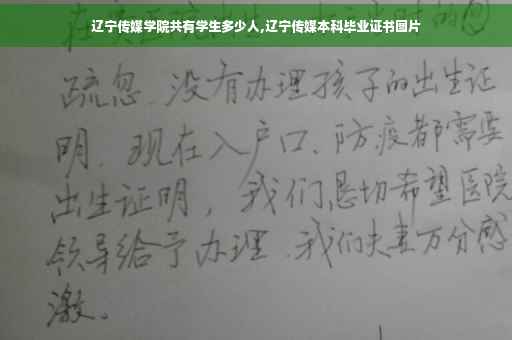 辽宁传媒学院共有学生多少人,辽宁传媒本科毕业证书图片
疏忽、没有办理孩子的出生证
明、现在入户口、防疫都需要
出生证明，我们恳切希望医院
领导给予办理、我们夫妻万分感
激。